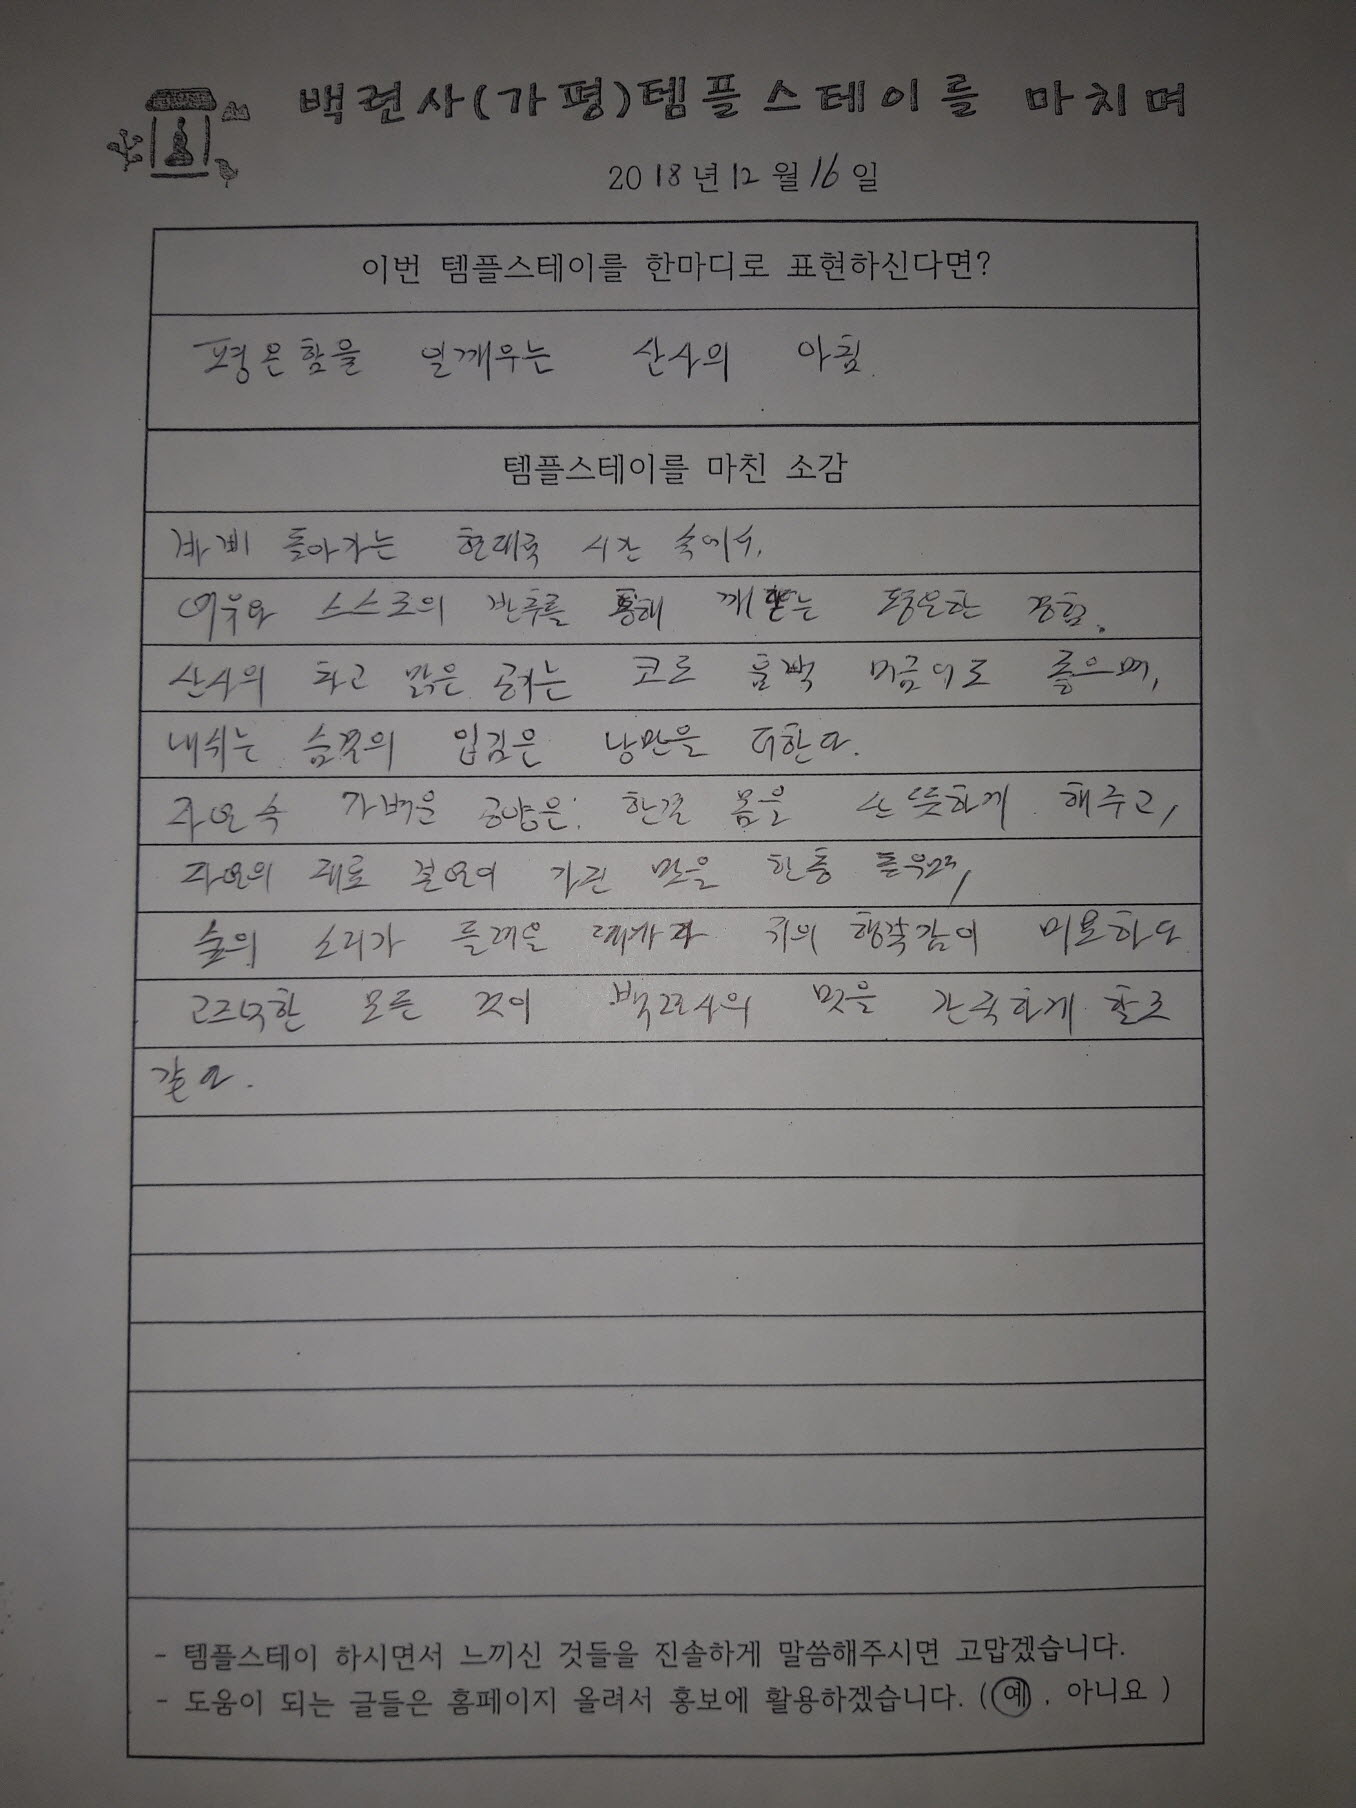 백련사(가평)템플스테이를 마치며
2018년 12월 16일
이번 템플스테이를 한마디로 표현하신다면?
평온함을 일깨우는 산사의 아침.
템플스테이를 마친 소감
바삐 돌아가는 현대 시간 속에서,
여유와 스스로의 반추를 통해 깨닫는 평온한 경험.
산사의 차고 맑은 공기는 코로 흠뻑 머금어도 좋으며,
내쉬는 숨결의 입김은 낭만을 더한다.
자연 속 가벼운 공양은 한결 몸을 산뜻하게 해주고,
자연의 재료 본연이 가진 맛을 한층 돋우며,
숲의 소리가 들려올 때마다 귀의 행복감이 미묘하다
고즈넉한 모든 것이 백련사의 멋을 간직하게 할 것
같다.
- 템플스테이 하시면서 느끼신 것들을 진솔하게 말씀해주시면 고맙겠습니다.
- 도움이 되는 글들은 홈페이지 올려서 홍보에 활용하겠습니다. (예, 아니요 )